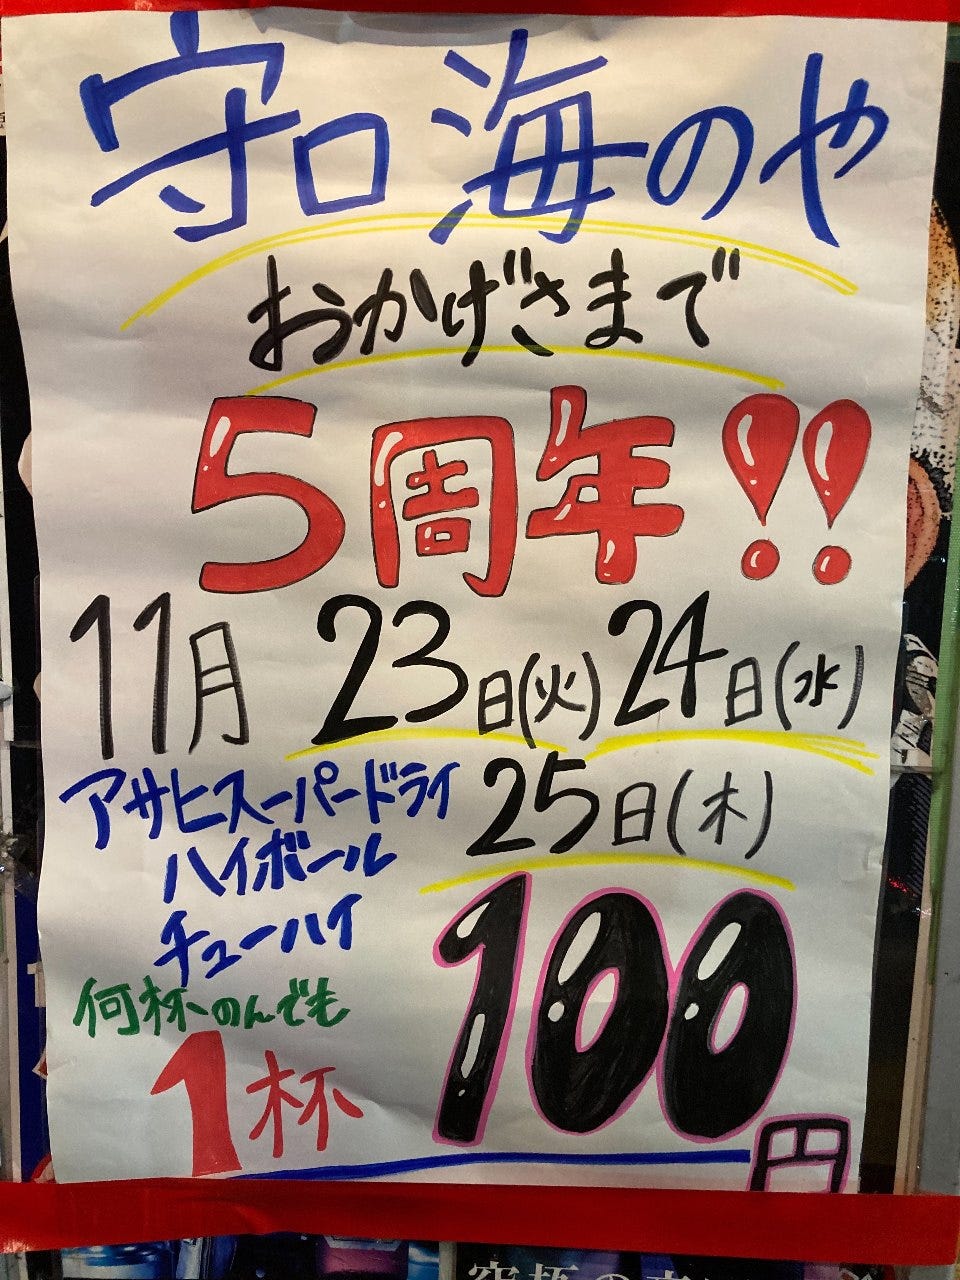 守口海のや
おかげさまで
5周年!!
11月 23日(火) 24日(水)
25日(木)
アサヒスーパードライ
ハイボール
チューハイ
何杯のんでも
1杯 100円